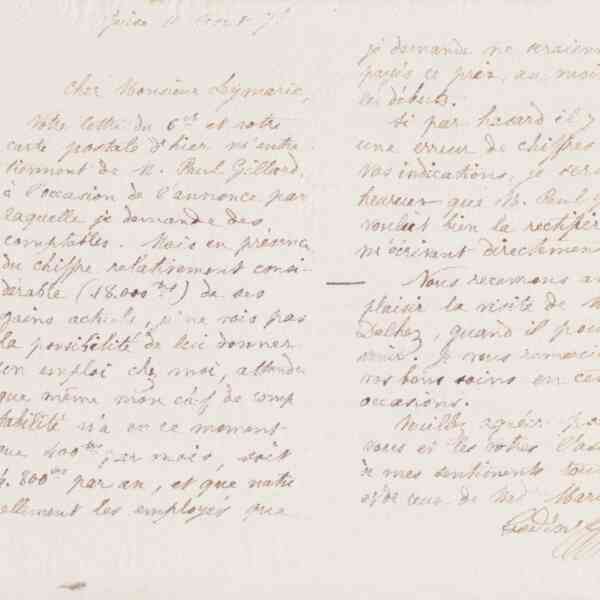 Guise 11 Aout 7
Cher Monsieur Leymarie,
Votre lettre du 6 ct et votre
carte postale d'hier m'entre
tiennent de M. Paul Gillard,
à l'occasion de l'annonce par
laquelle je demande des
comptables. Mais en présence
du chiffre relativement consi-
dérable (18.000 frs) de ses
gains actuels, je ne vois pas
la possibilité de lui donner
un emploi chez moi, attendu
que même mon chef de comp
tabilité n'a en ce moment
que 400 frs par mois, soit
4.800 frs par an, et que natu
rellement les employés que
je demande ne seraient
payés ce prix, au moins
les débuts.
Si par hasard il y
une erreur de chiffres
vos indications, je serai
heureux que M. Paul G
voulut bien la rectifier
m'écrivant directement
— Nous recevrons a
plaisir la visite de M
quand il pour
venir. Je vous remerci
vos bons soins en ce
occasions.
Veuillez agréer po
vous et les vôtres l'as
de mes sentiments tou
et de ceux de Mad. Mari
Godin